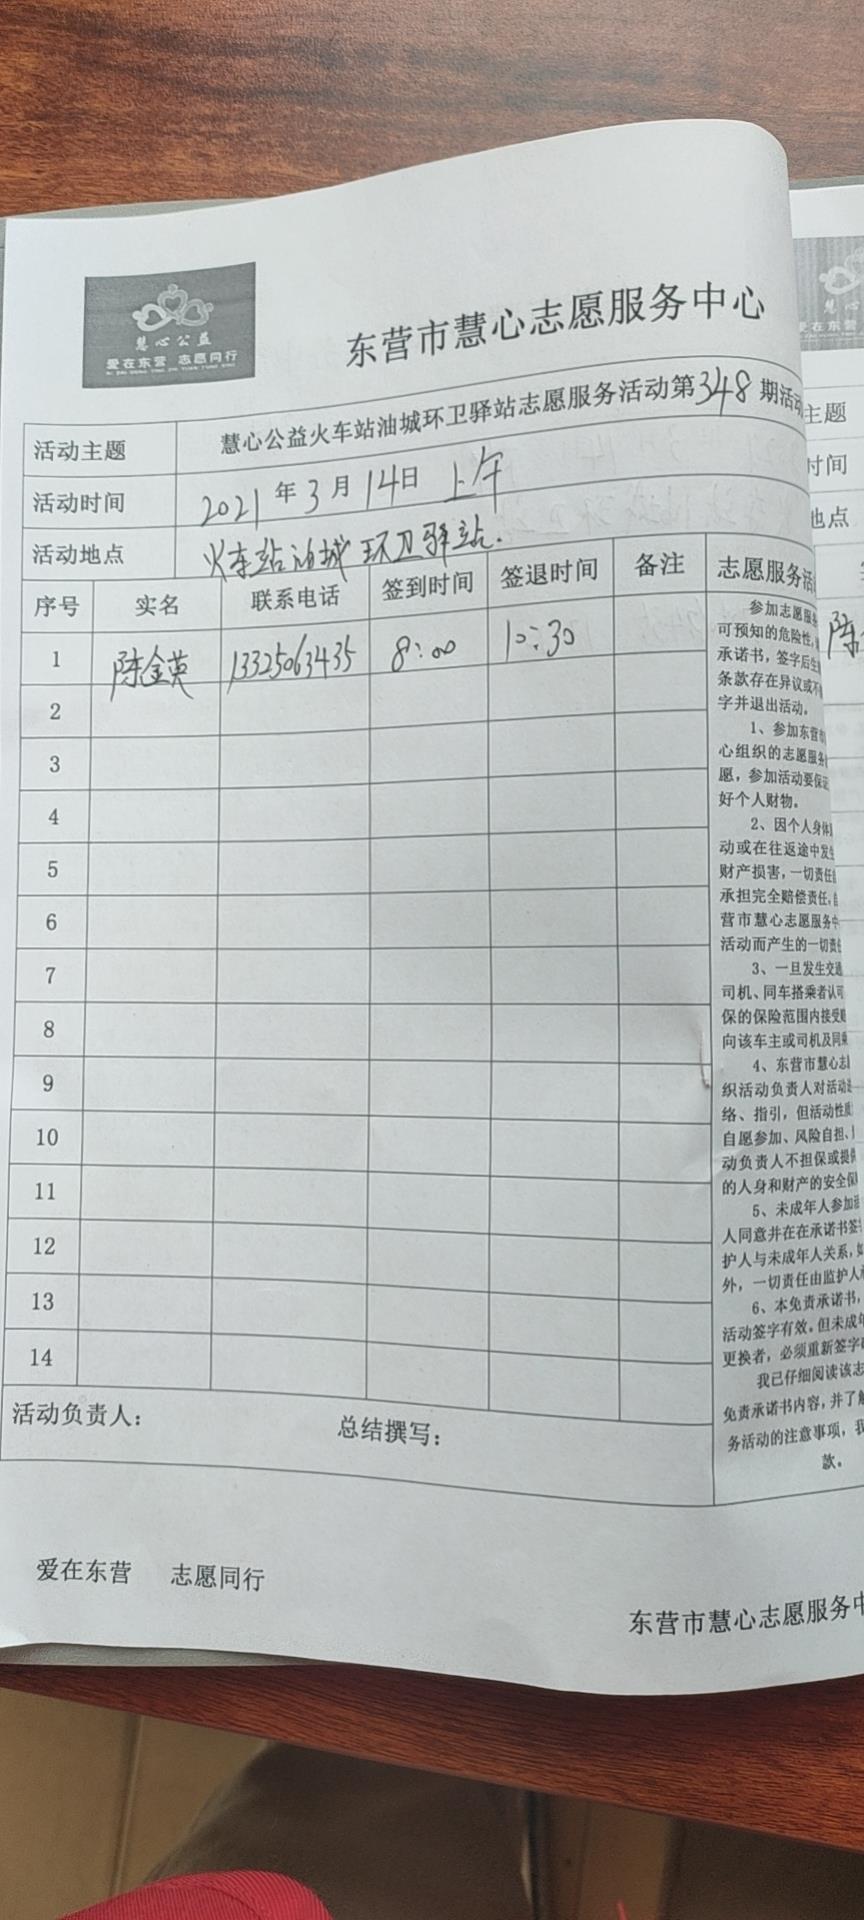 慧心公益
爱在东营 志愿同行
东营市慧心志愿服务中心
活动主题 慧心公益火车站油城环卫驿站志愿服务活动第348期活动
活动时间 2021年3月14日 上午
活动地点 火车站油城环卫驿站.
序号 实名 联系电话 签到时间 签退时间 备注
1 陈金英 13325063435 8:00 10:30
2
3
4
5
6
7
8
9
10
11
12
13
14
活动负责人: 总结撰写:
志愿服务活
参加志愿服务
可预知的危险性,
承诺书,签字后生
条款存在异议或不
字并退出活动。
1、参加东营市
心组织的志愿服务
愿,参加活动要保证
好个人财物。
2、因个人身体
动或在往返途中发生
财产损害,一切责任
承担完全赔偿责任,自
营市慧心志愿服务中
活动而产生的一切责任
3、一旦发生交通
司机、同车搭乘者认可
保的保险范围内接受赔
向该车主或司机及同乘
4、东营市慧心志
织活动负责人对活动进
络、指引,但活动性质
自愿参加、风险自担、
动负责人不担保或提供
的人身和财产的安全保
5、未成年人参加
人同意并在在承诺书签
护人与未成年人关系,如
外,一切责任由监护人
6、本免责承诺书,
活动签字有效。但未成年
更换者,必须重新签字
我已仔细阅读该志
免责承诺书内容,并了解
务活动的注意事项,我
款。
爱在东营 志愿同行
东营市慧心志愿服务中
主题
时间
地点
陈